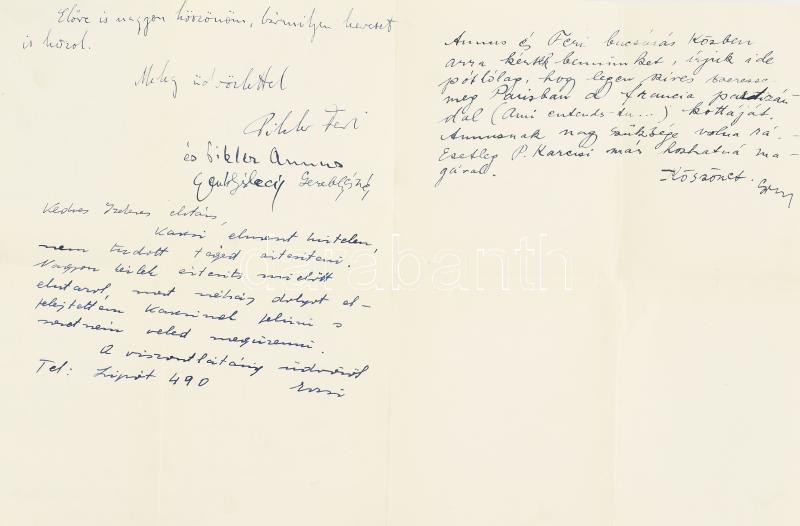 Előre is nagyon köszönöm, bármilyen keveset
is hozol.
Meleg üdvözlettel
Pikler Feri
és Pikler Annus
Kedves Szekeres elvtárs,
Karcsi elment hirtelen,
nem tudott Téged értesíteni.
Nagyon kérlek értesíts mielőtt
elutazol, mert néhány dolgot el-
felejtettem Karcsinak felírni s
szeretném veled megüzenni.
A viszontlátásig üdvözöl
Tel: Lipót 490
Annus és Feri búcsúzás közben
arra kértek bennünket, írjuk ide
pótlólag, hogy légy szíves szerezze
meg Párisban a francia partizán-
dal (Ami entends-tu...) kottáját.
Annusnak nagy szüksége volna rá. -
Esetleg P. Karcsi már hozhatná ma-
gával.
Köszönet
darabanth